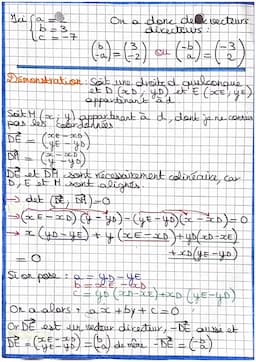 Ici { a = 2
b = 3
c = -7
On a donc 2 vecteurs
directeurs :
(b -a) = (3 -2) ou (-b a) = (-3 2)
Démonstration : Soit une droite d quelconque
et D (xD, yD) et E (xE, yE)
appartenant à d
Soit M (x, y) appartenant à d, dont je ne connais
pas les coordonnées
DE = (xE - xD yE - yD)
DM = (x - xD y - yD)
DE et DM sont nécessairement colinéaires, car
D, E et M sont alignés.
→ det (DE, DM) = 0
→ (xE - xD) (y - yD) - (yE - yD)(x - xD) = 0
→ x (yD - yE) + y (xE - xD) + yD(xD - xE)
+ xD(yE - yD)
= 0
Si on pose : a = yD - yE
b = xE - xD
c = yD (xD - xE) + xD (yE - yD)
On a alors : ax + by + c = 0
Or DE est un vecteur directeur, -DE aussi et
DE = (xE - xD yE - yD) = (b -a) de même -DE = (-b a)